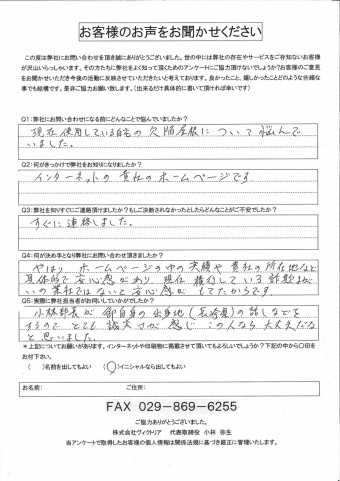 お客様のお声をお聞かせください
この度は弊社にお問い合わせを頂き誠にありがとうございました。世の中には弊社の存在やサービスをご存知ないお客様
が沢山いらっしゃいます。その方たちに弊社をよく知って頂くためのアンケートにご協力頂けないでしょうか？お客様のご意見
をお聞かせいただき今後の活動に反映させていただきたいと考えております。良かったこと、嬉しかったことどのような些細な
事でも結構です。是非ご協力お願い致します。（出来るだけ具体的に書いて頂ければ幸いです）
Q1：弊社にお問い合わせになる前にどんなことで悩んでいましたか？
現在使用している自宅の欠陥屋根について悩んで
いました。
Q2：何がきっかけで弊社をお知りになりましたか？
インターネットの貴社のホームページです
Q3：弊社を知りすぐにご連絡頂けましたか？もしご決断されなかったとしたらどんなことがご不安でしたか？
すぐに連絡しました。
Q4：何が決め手となり弊社にお問い合わせ頂けましたか？
やはり ホームページの中の実績や貴社の所在地など
具体的で安心感があり 現在横行している詐欺まが
いの業社ではないと安心感が もてたからです。
Q5：実際に弊社担当者がお伺いしていかがでしたか？
小林部長が御自身の出身地（長崎県）の話しなどを
するので とても誠実さが感じ この人なら大丈夫だな
と思いました。
＊上記についてお願いがあります。インターネットや印刷物に掲載させて頂いてもよろしいでしょうか？下記の中から○印を
お付け下さい。
（　）名前を出してもよい　（○）イニシャルなら出してもよい
お名前：　ご住所：
FAX 029-869-6255
ご協力ありがとうございました。
株式会社ヴィクトリア　代表取締役 小林 弥生
当アンケートで取得したお客様の個人情報は関係法規に基づき厳正に管理いたします。